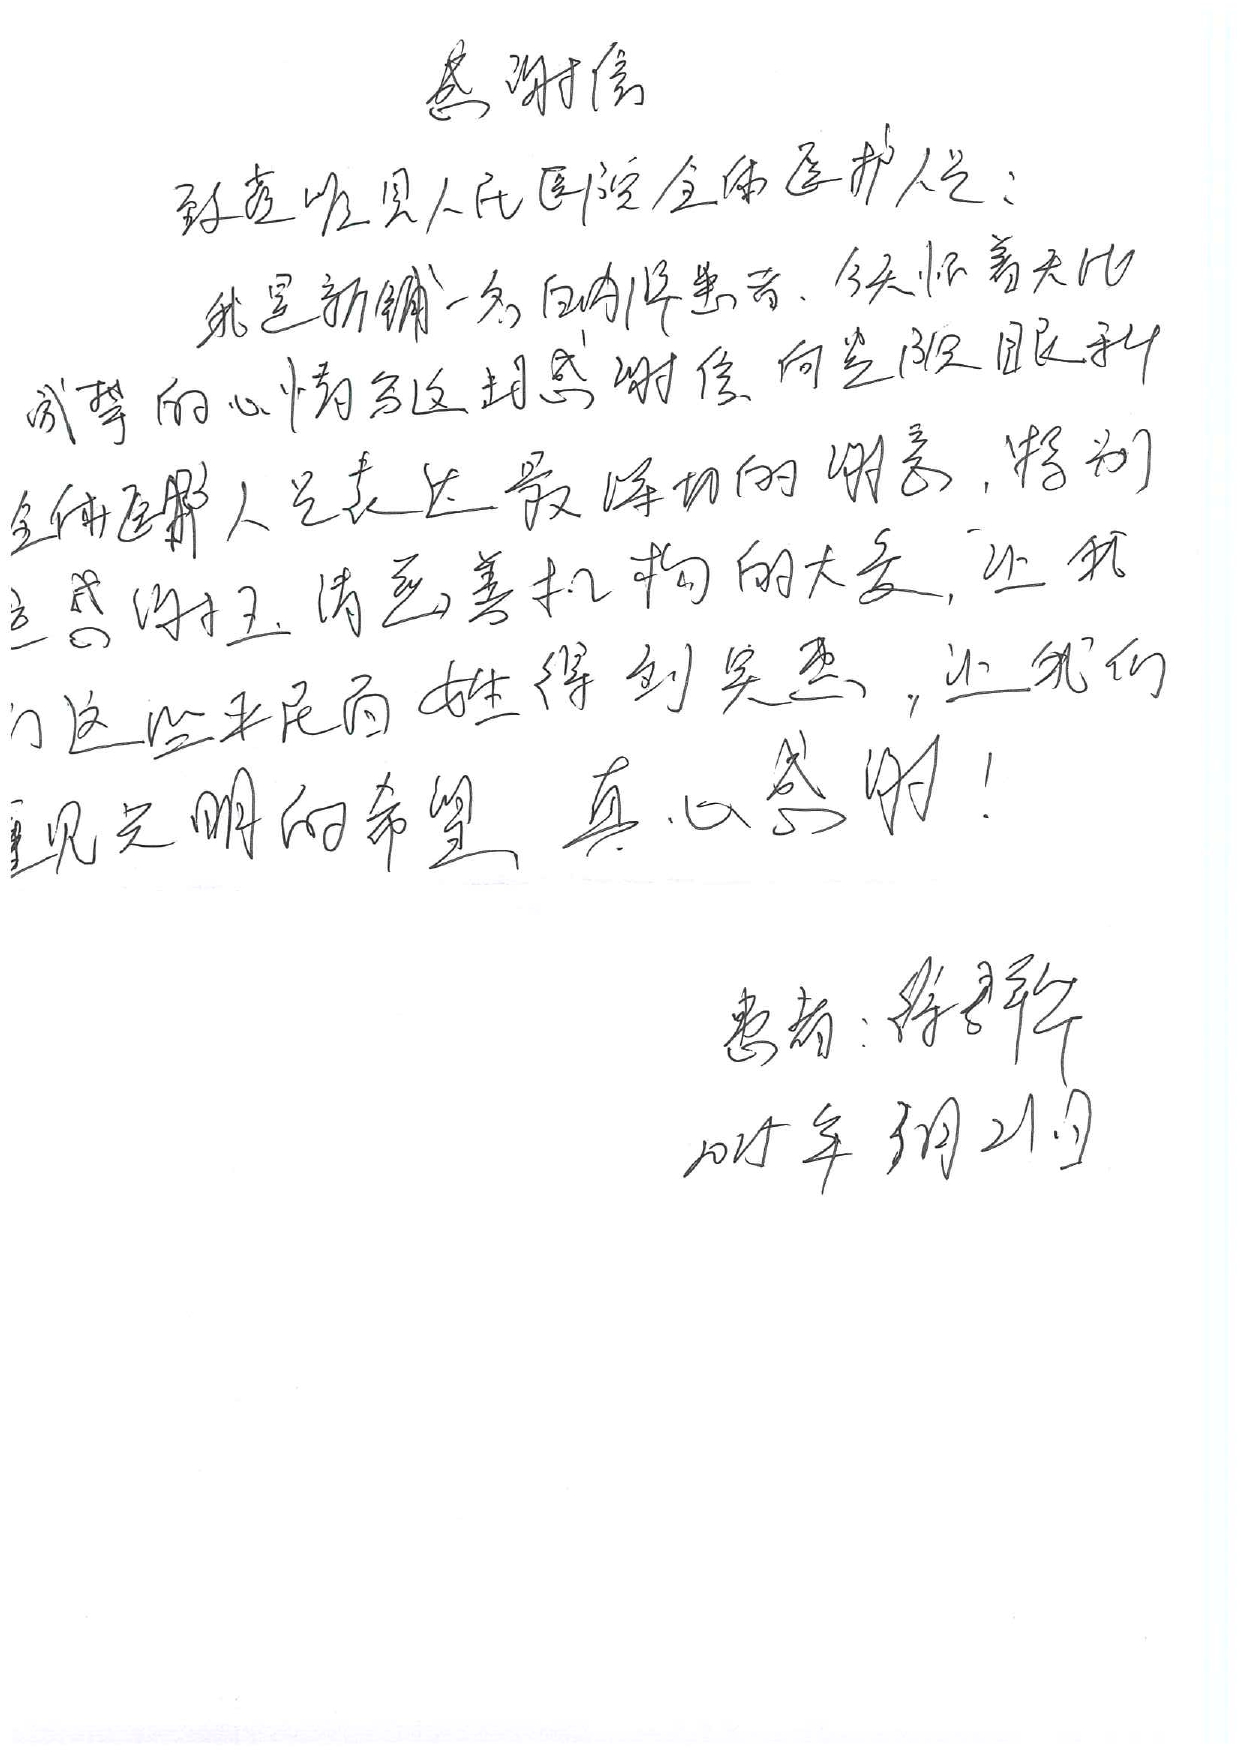 感谢信
致蕉岭县人民医院全体医护人员：
我是新铺一名白内障患者，今天怀着无比
诚挚的心情写这封感谢信，向贵院眼科
全体医护人员表达最深切的谢意，特别
感谢 清慈善机构的大爱，让我
们这些平民百姓得到实惠，让我们
重见光明的希望，真心感谢！
患者：徐
2025年3月21日